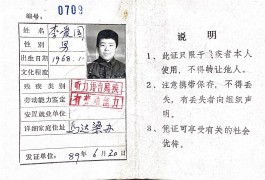 编号: 0709
姓名 李爱国
性别 男
出生日期 1968.11
文化程度
残疾类别 听力语言残疾
劳动能力鉴定 有劳动能力
安置就业单位
详细家庭住址
发证单位: 89年6月20日
说明
1、此证只限于残疾者本人
使用,不得转让他人。
2、注意携带保存,不得丢
失,有丢失者向组织声
明。
3、凭证可享受有关的社会
优待。